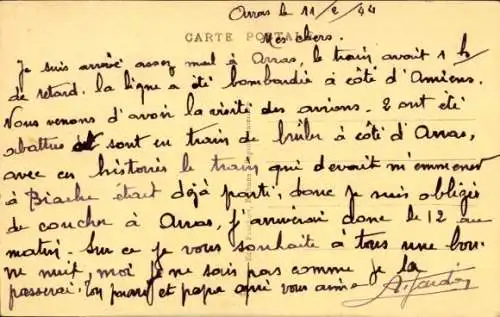 Arras le 11/2/44
CARTE POSTALE
Mes chers.
Je suis arrivé assez mal à Arras, le train avait 1 h
de retard. la ligne a été bombardée à côté d'Amiens.
Nous venons d'avoir la visite des avions. 2 ont été
abattus et sont en train de brûler à côté d'Arras,
avec ces histoires le train qui devait m'emmener
à Biache était déjà parti, donc je suis obligée
de coucher à Arras, j'arriverai donc le 12 au
matin. Sur ce je vous souhaite à tous une bon-
ne nuit, moi je ne sais pas comme je la
passerai. Ton et papa qui vous aime